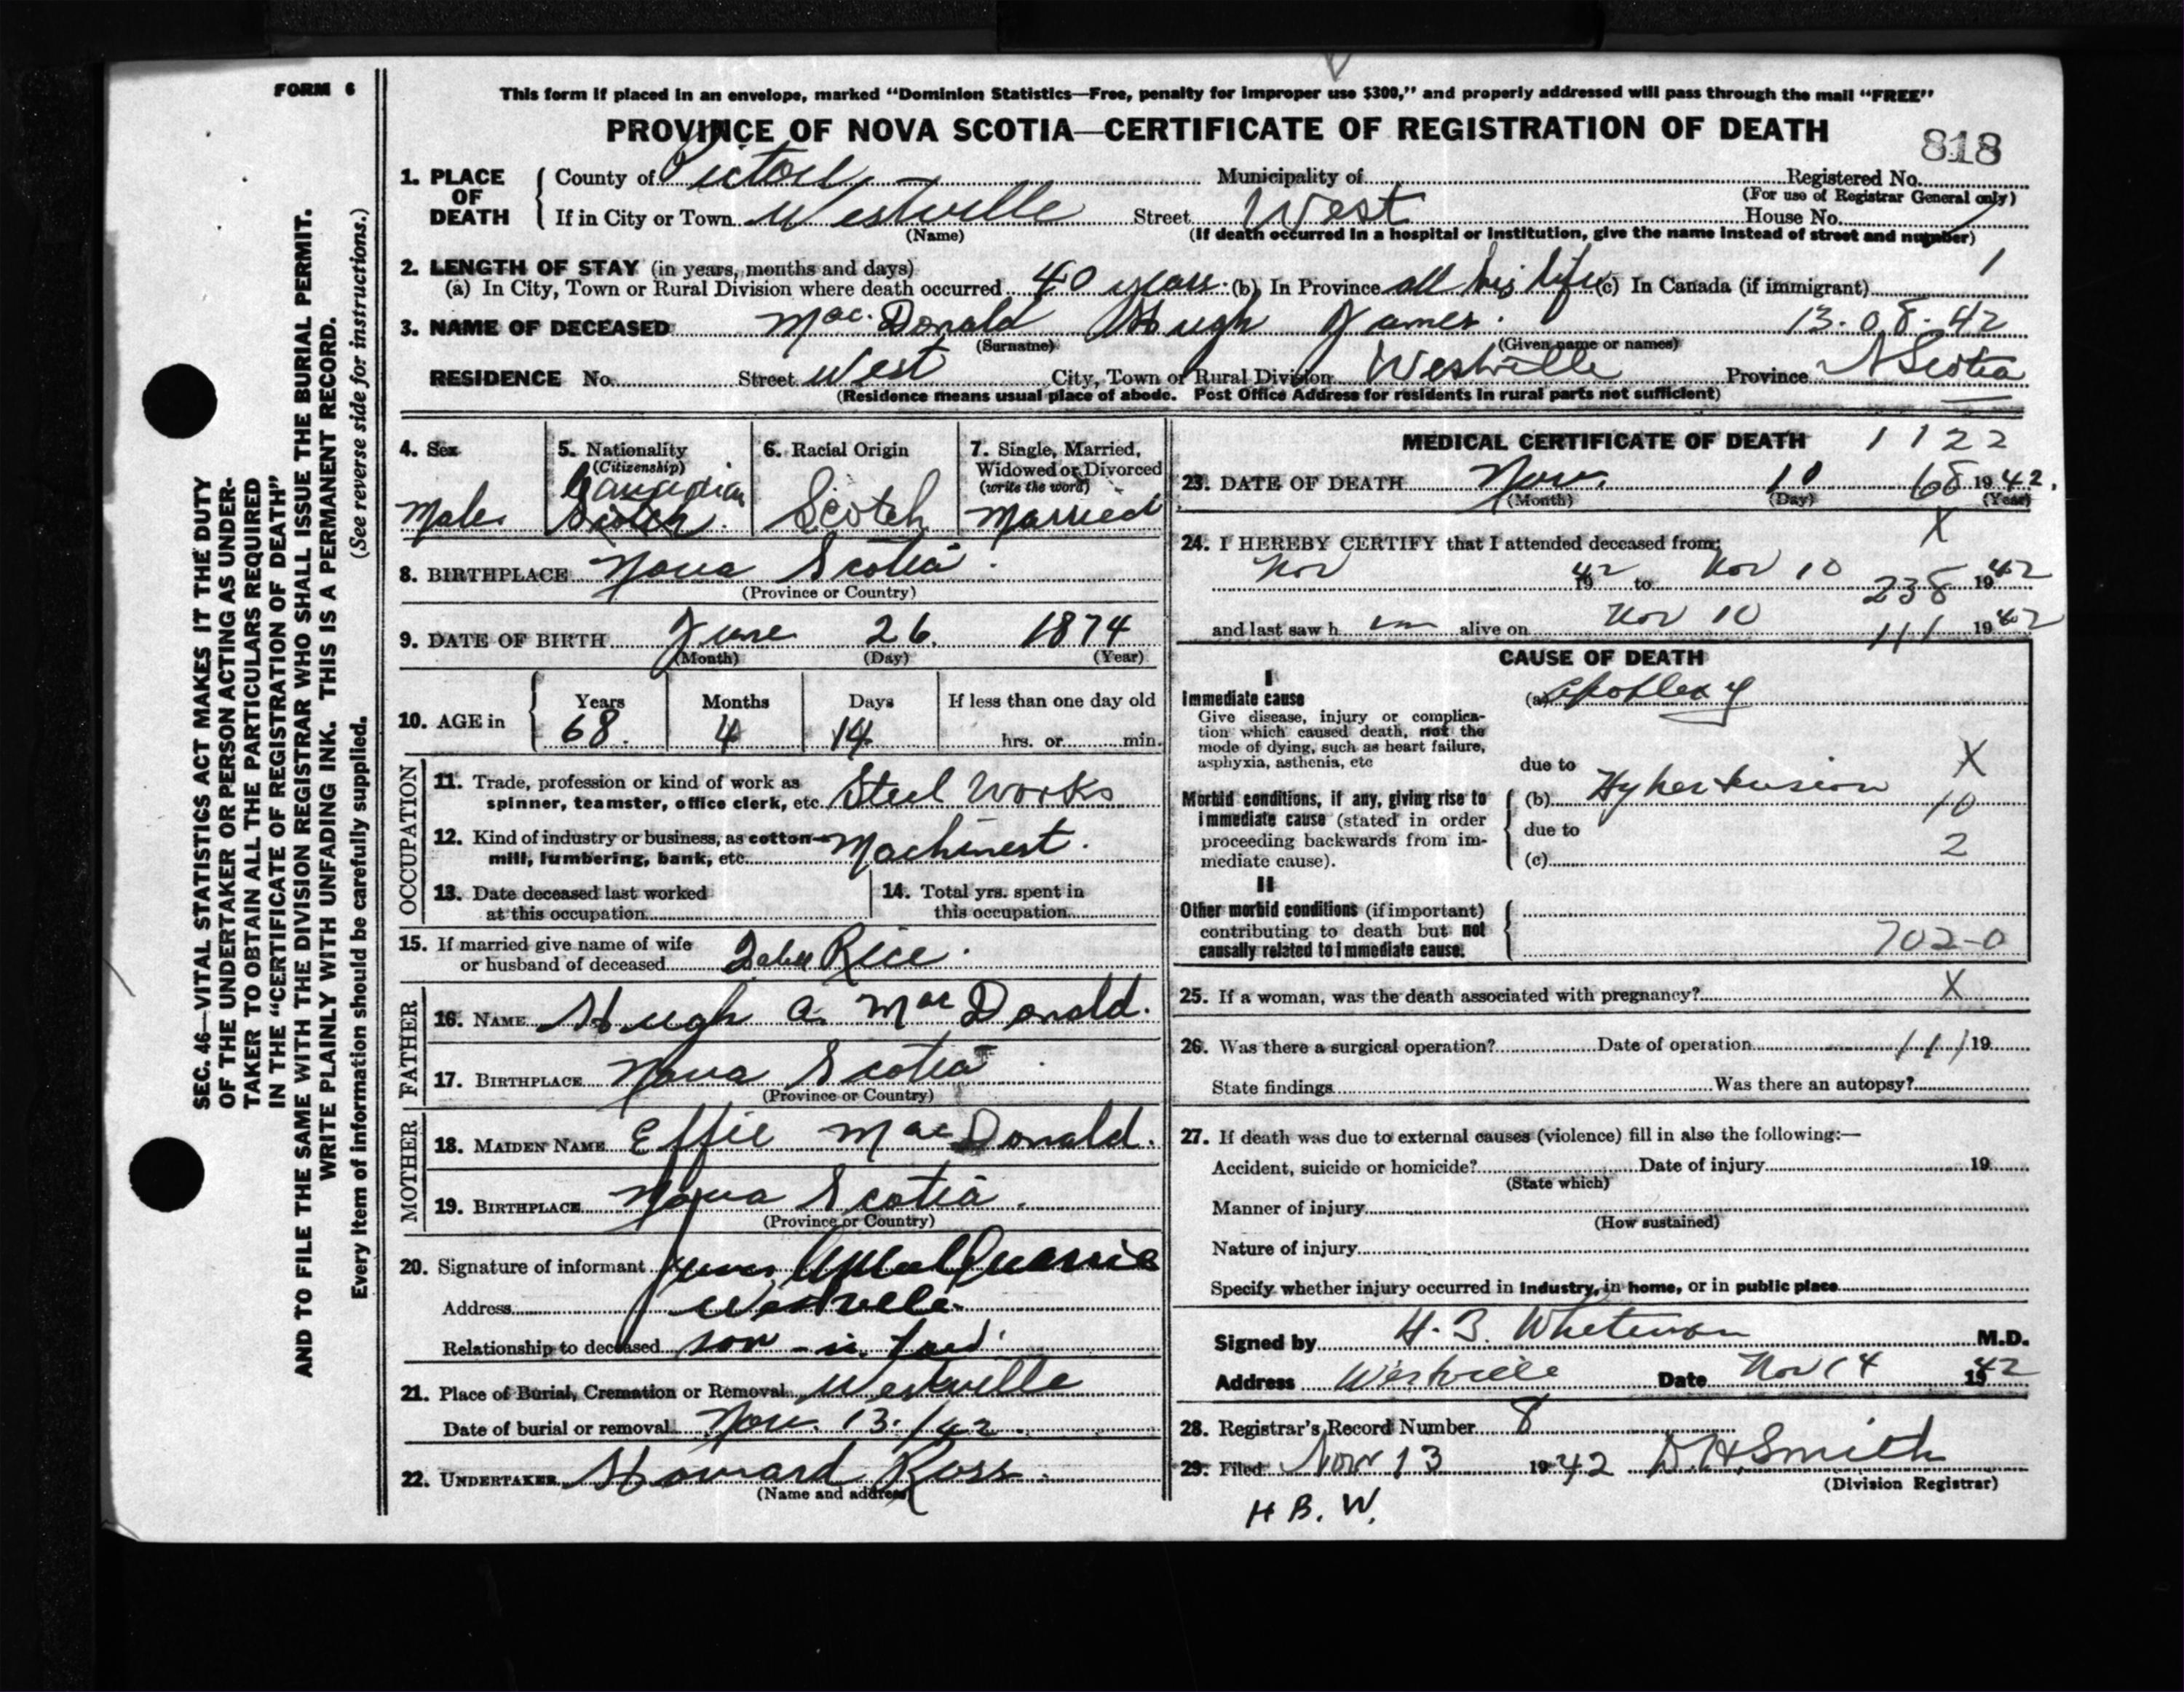 FORM 6
This form if placed in an envelope, marked “Dominion Statistics—Free, penalty for improper use $300,” and properly addressed will pass through the mail “FREE”
PROVINCE OF NOVA SCOTIA—CERTIFICATE OF REGISTRATION OF DEATH
818
1. PLACE OF DEATH
County of Pictou Municipality of Registered No.
(For use of Registrar General only)
If in City or Town Westville Street West House No.
(Name) (If death occurred in a hospital or institution, give the name instead of street and number)
2. LENGTH OF STAY (in years, months and days) 1
(a) In City, Town or Rural Division where death occurred 40 years. (b) In Province all his life (c) In Canada (if immigrant)
3. NAME OF DECEASED MacDonald Hugh James. 13-08-42
(Surname) (Given name or names)
RESIDENCE No. Street West City, Town or Rural Division Westville Province N Scotia
(Residence means usual place of abode. Post Office Address for residents in rural parts not sufficient)
4. Sex
Male
5. Nationality
(Citizenship)
Canadian
Scotch
6. Racial Origin
Scotch
7. Single, Married,
Widowed or Divorced
(write the word)
Married
8. BIRTHPLACE Nova Scotia.
(Province or Country)
9. DATE OF BIRTH June 26. 1874
(Month) (Day) (Year)
10. AGE in
Years Months Days If less than one day old
68. 4 14 hrs. or min.
OCCUPATION
11. Trade, profession or kind of work as
spinner, teamster, office clerk, etc. Steel Works
12. Kind of industry or business, as cotton-
mill, lumbering, bank, etc. Machinest.
13. Date deceased last worked
at this occupation
14. Total yrs. spent in
this occupation
15. If married give name of wife
or husband of deceased Rice.
FATHER
16. NAME Hugh A. MacDonald.
17. BIRTHPLACE Nova Scotia
(Province or Country)
MOTHER
18. MAIDEN NAME Effie MacDonald.
19. BIRTHPLACE Nova Scotia.
(Province or Country)
20. Signature of informant James
Address Westville
Relationship to deceased son-in-law
21. Place of Burial, Cremation or Removal Westville
Date of burial or removal Nov. 13./42.
22. UNDERTAKER Howard Ross.
(Name and address)
MEDICAL CERTIFICATE OF DEATH 1 1 2 2
23. DATE OF DEATH Nov. 10 68 1942.
(Month) (Day) (Year)
X
24. I HEREBY CERTIFY that I attended deceased from:
Nov 1942 to Nov 10 238 1942
and last saw him alive on Nov 10 111 1942
CAUSE OF DEATH
I
Immediate cause (a) Apoplexy
Give disease, injury or complica-
tion which caused death, not the
mode of dying, such as heart failure,
asphyxia, asthenia, etc
due to X
Morbid conditions, if any, giving rise to
immediate cause (stated in order
proceeding backwards from im-
mediate cause).
(b) Hypertension 10
due to
(c) 2
II
Other morbid conditions (if important)
contributing to death but not
causally related to immediate cause.
702-0
25. If a woman, was the death associated with pregnancy? X
26. Was there a surgical operation? Date of operation 111 19
State findings Was there an autopsy?
27. If death was due to external causes (violence) fill in also the following:—
Accident, suicide or homicide? Date of injury 19
(State which)
Manner of injury
(How sustained)
Nature of injury
Specify whether injury occurred in industry, in home, or in public place
Signed by H. B. Whitman M.D.
Address Westville Date Nov 14 1942
28. Registrar's Record Number 8
29. Filed Nov 13 1942 D.H. Smith
(Division Registrar)
H B. W.
SEC. 46—VITAL STATISTICS ACT MAKES IT THE DUTY
OF THE UNDERTAKER OR PERSON ACTING AS UNDER-
TAKER TO OBTAIN ALL THE PARTICULARS REQUIRED
IN THE “CERTIFICATE OF REGISTRATION OF DEATH”
AND TO FILE THE SAME WITH THE DIVISION REGISTRAR WHO SHALL ISSUE THE BURIAL PERMIT.
WRITE PLAINLY WITH UNFADING INK. THIS IS A PERMANENT RECORD.
Every Item of information should be carefully supplied. (See reverse side for instructions.)